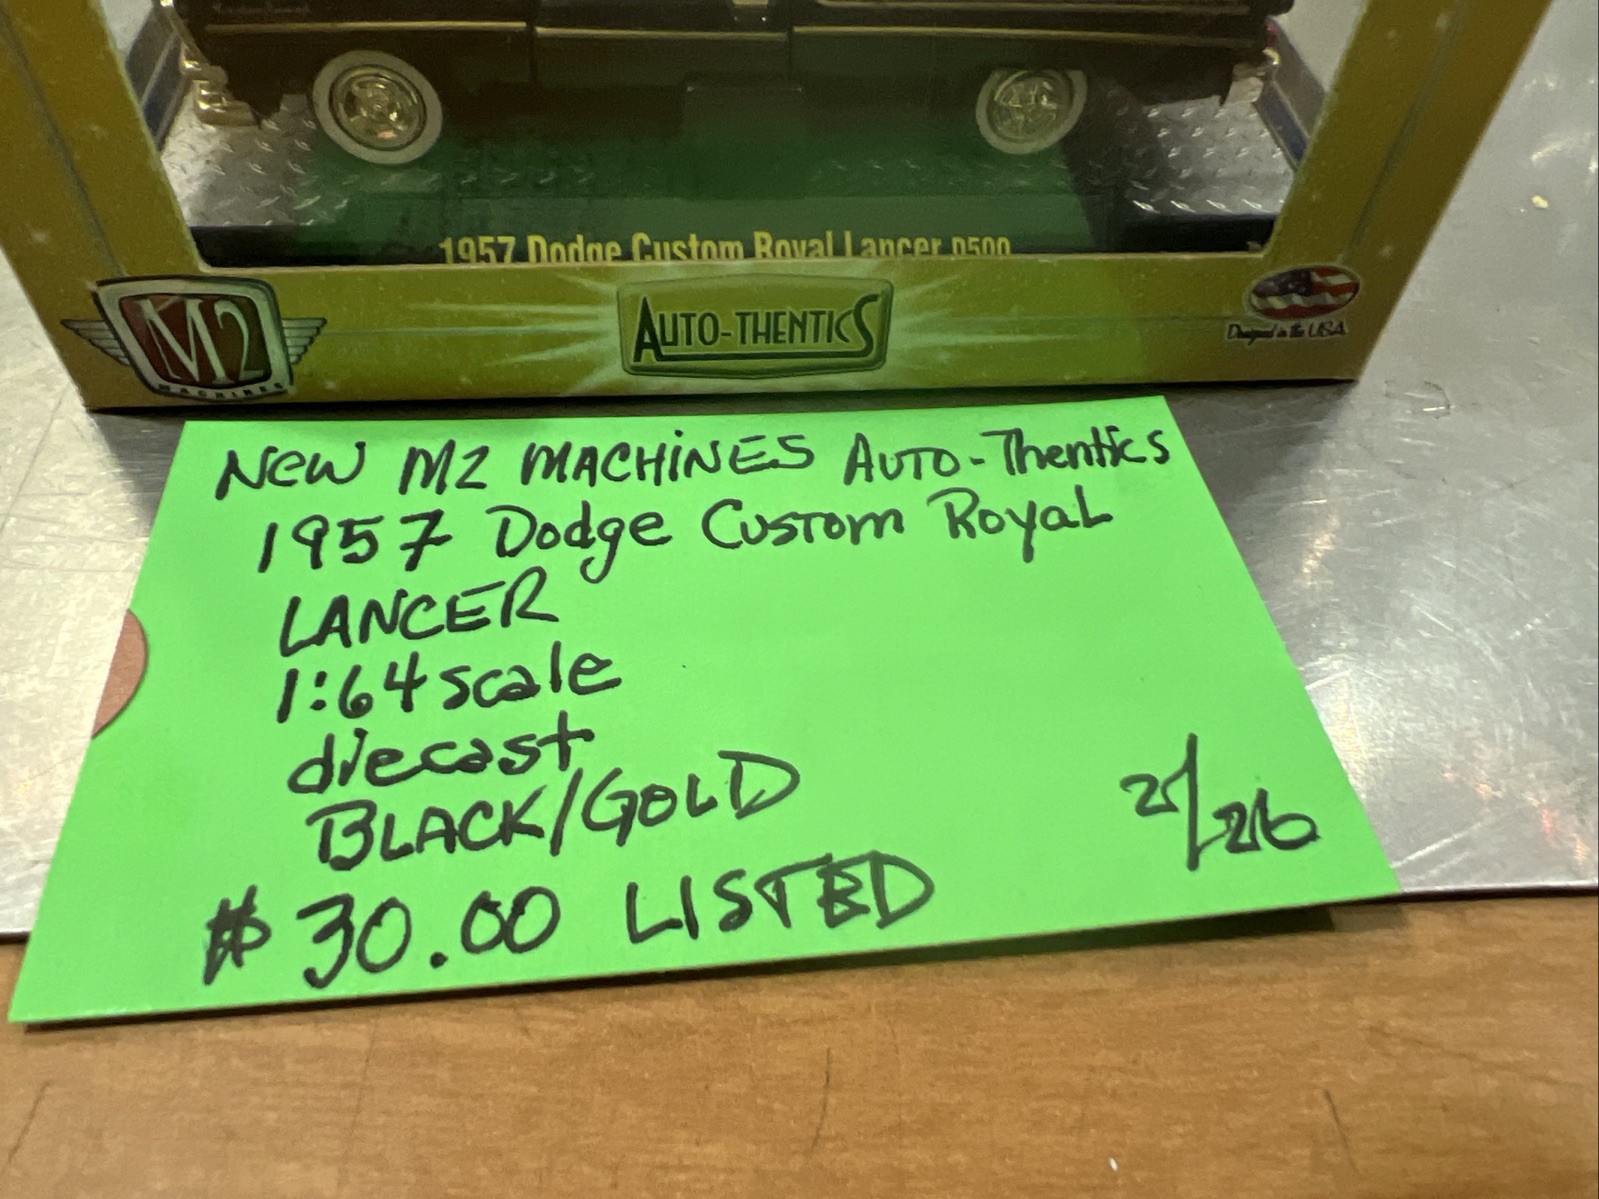 1957 Dodge Custom Royal Lancer D500
M2
MACHINES
AUTO-THENTICS
Designed in the USA
New M2 MACHiNES AUTO-Thentics
1957 Dodge Custom Royal
LANCER
1:64 scale
diecast
BLACK/GOLD
2/26
$30.00 LISTED